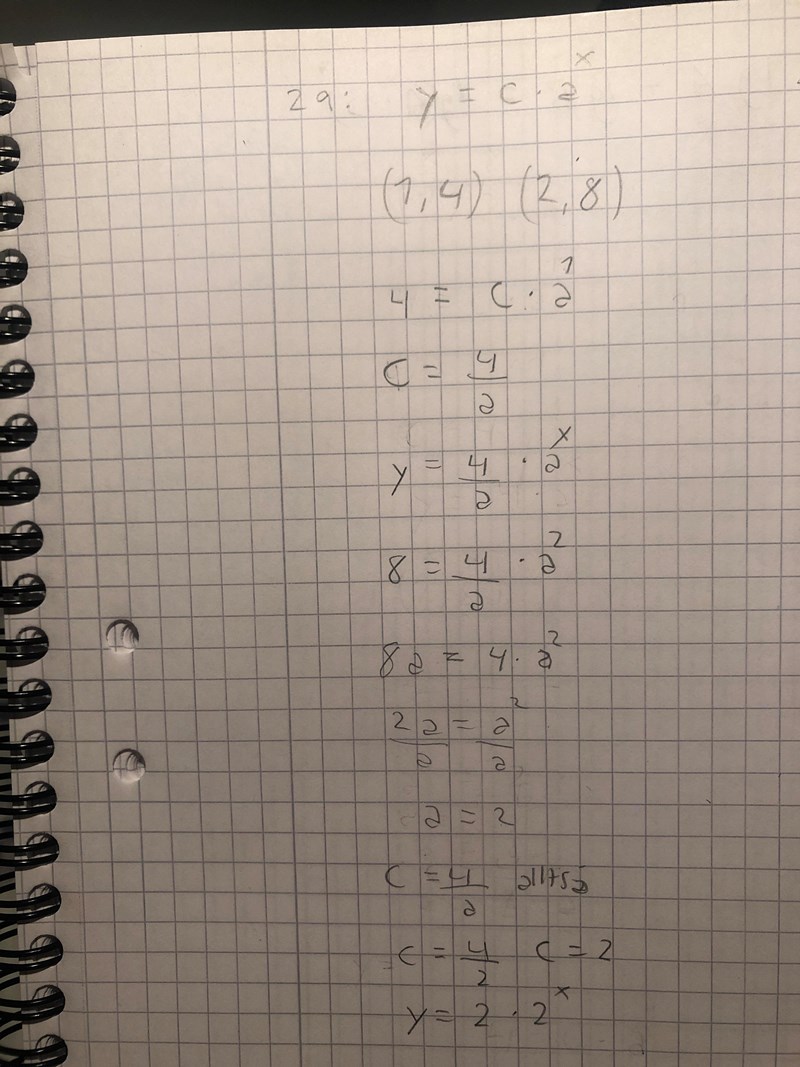 29: y = C · a^x
(1,4) (2,8)
4 = C · a^1
C = 4/a
y = 4/a · a^x
8 = 4/a · a^2
8a = 4 · a^2
2a/a = a^2/a
a = 2
C = 4/a alltså
C = 4/2 C = 2
y = 2 · 2^x